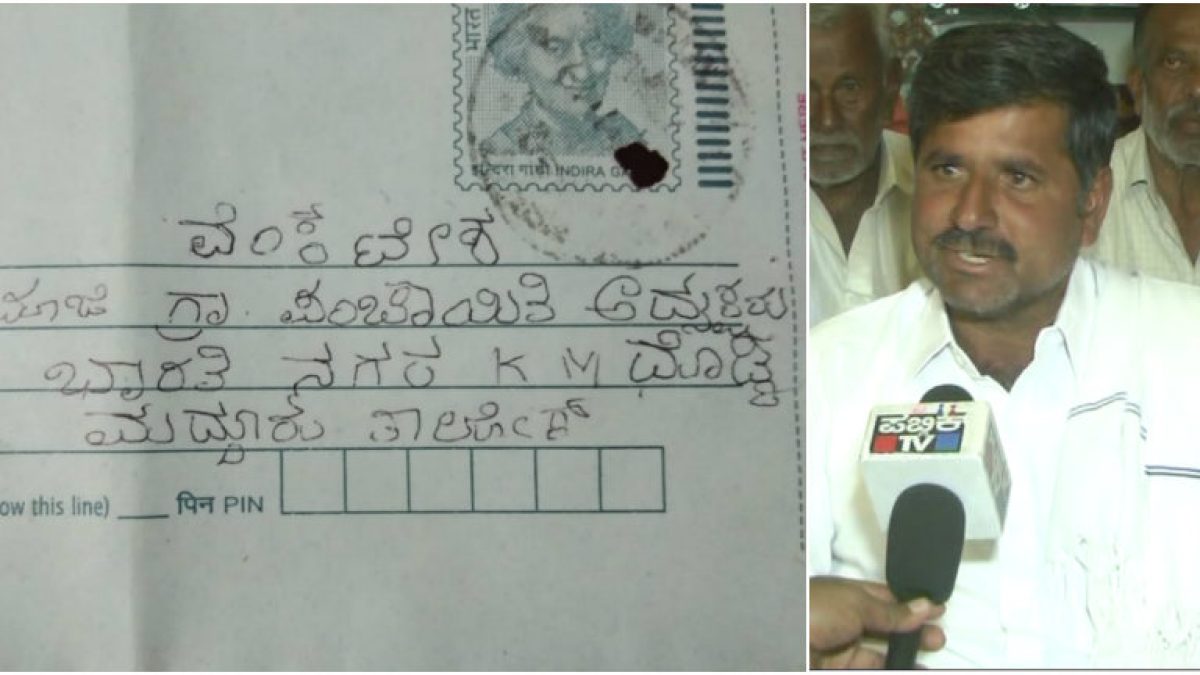 भारत
इन्दिरा गांधी INDIRA
ವೆಂಕಟೇಶ
ಮಾಜಿ ಗ್ರಾ. ಪಂಚಾಯಿತಿ ಅಧ್ಯಕ್ಷರು
ಭಾರತಿ ನಗರ K M ದೊಡ್ಡಿ
ಮದ್ದೂರು ತಾಲೂಕ್
this line) ___ पिन PIN
ಪಬ್ಲಿಕ್
TV